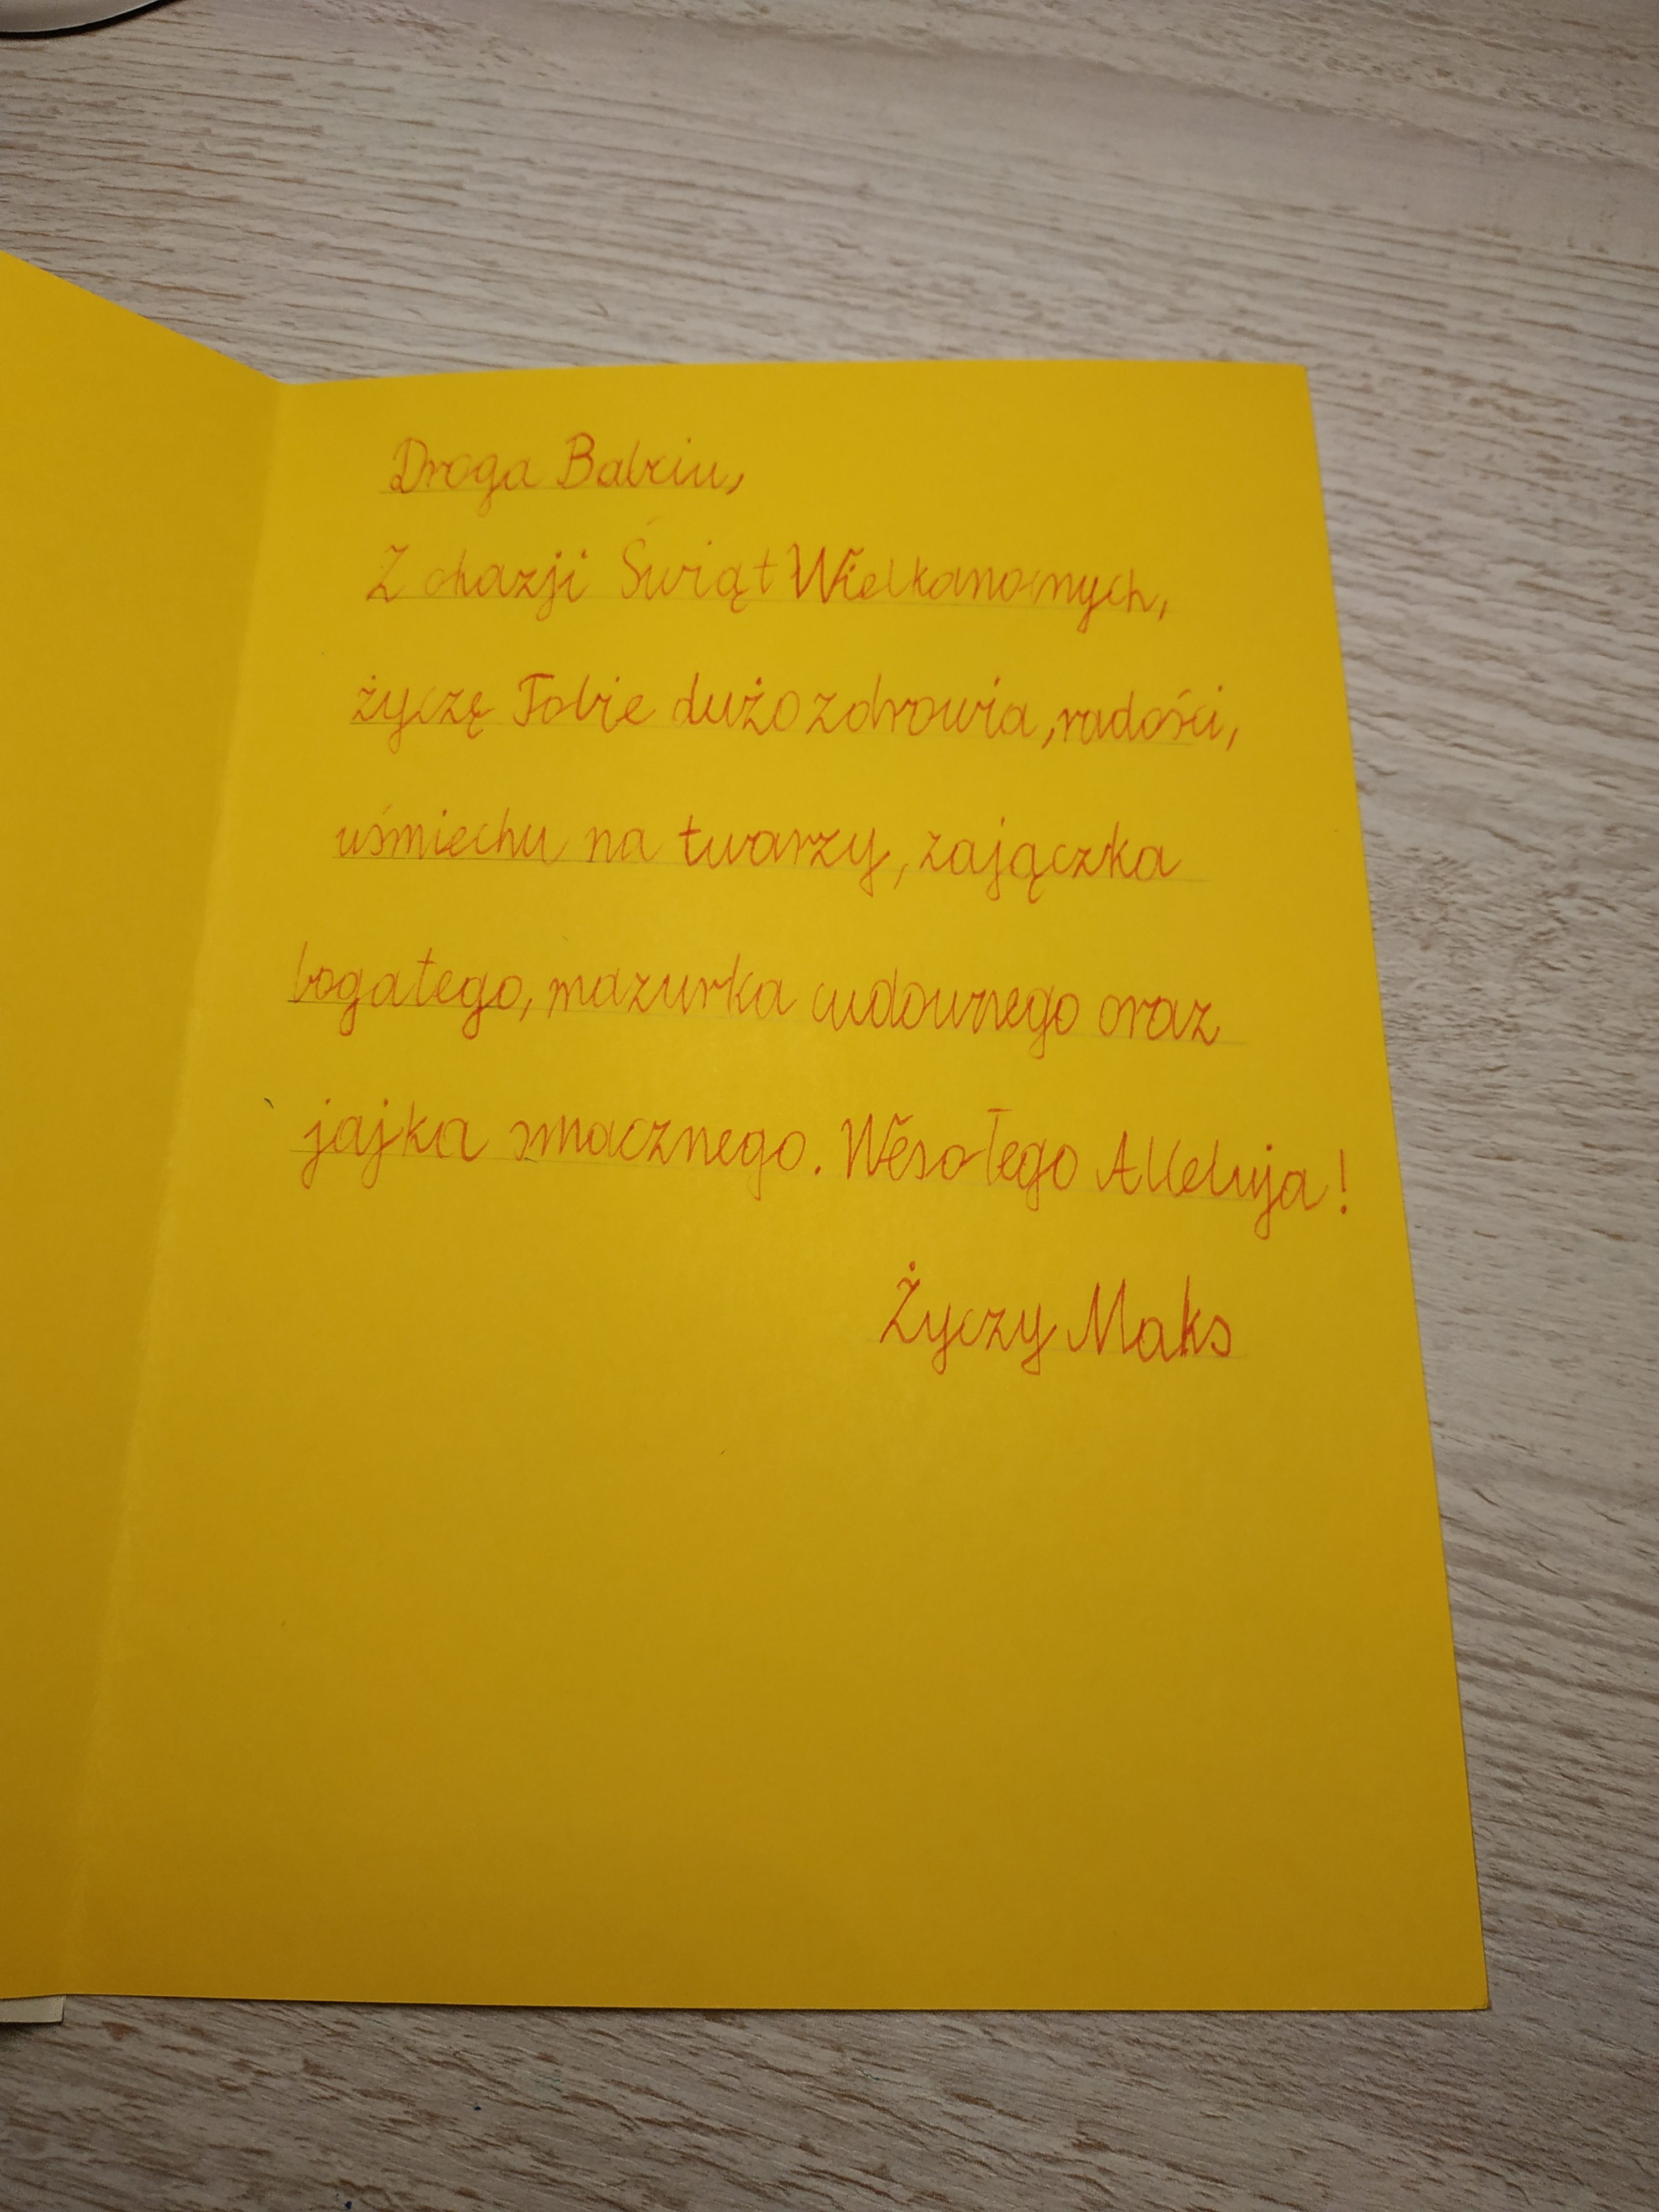 Droga Babciu,
Z okazji Świąt Wielkanocnych,
życzę Tobie dużo zdrowia, radości,
uśmiechu na twarzy, zajączka
bogatego, mazurka cudownego oraz
jajka smacznego. Wesołego Alleluja!
Życzy Maks